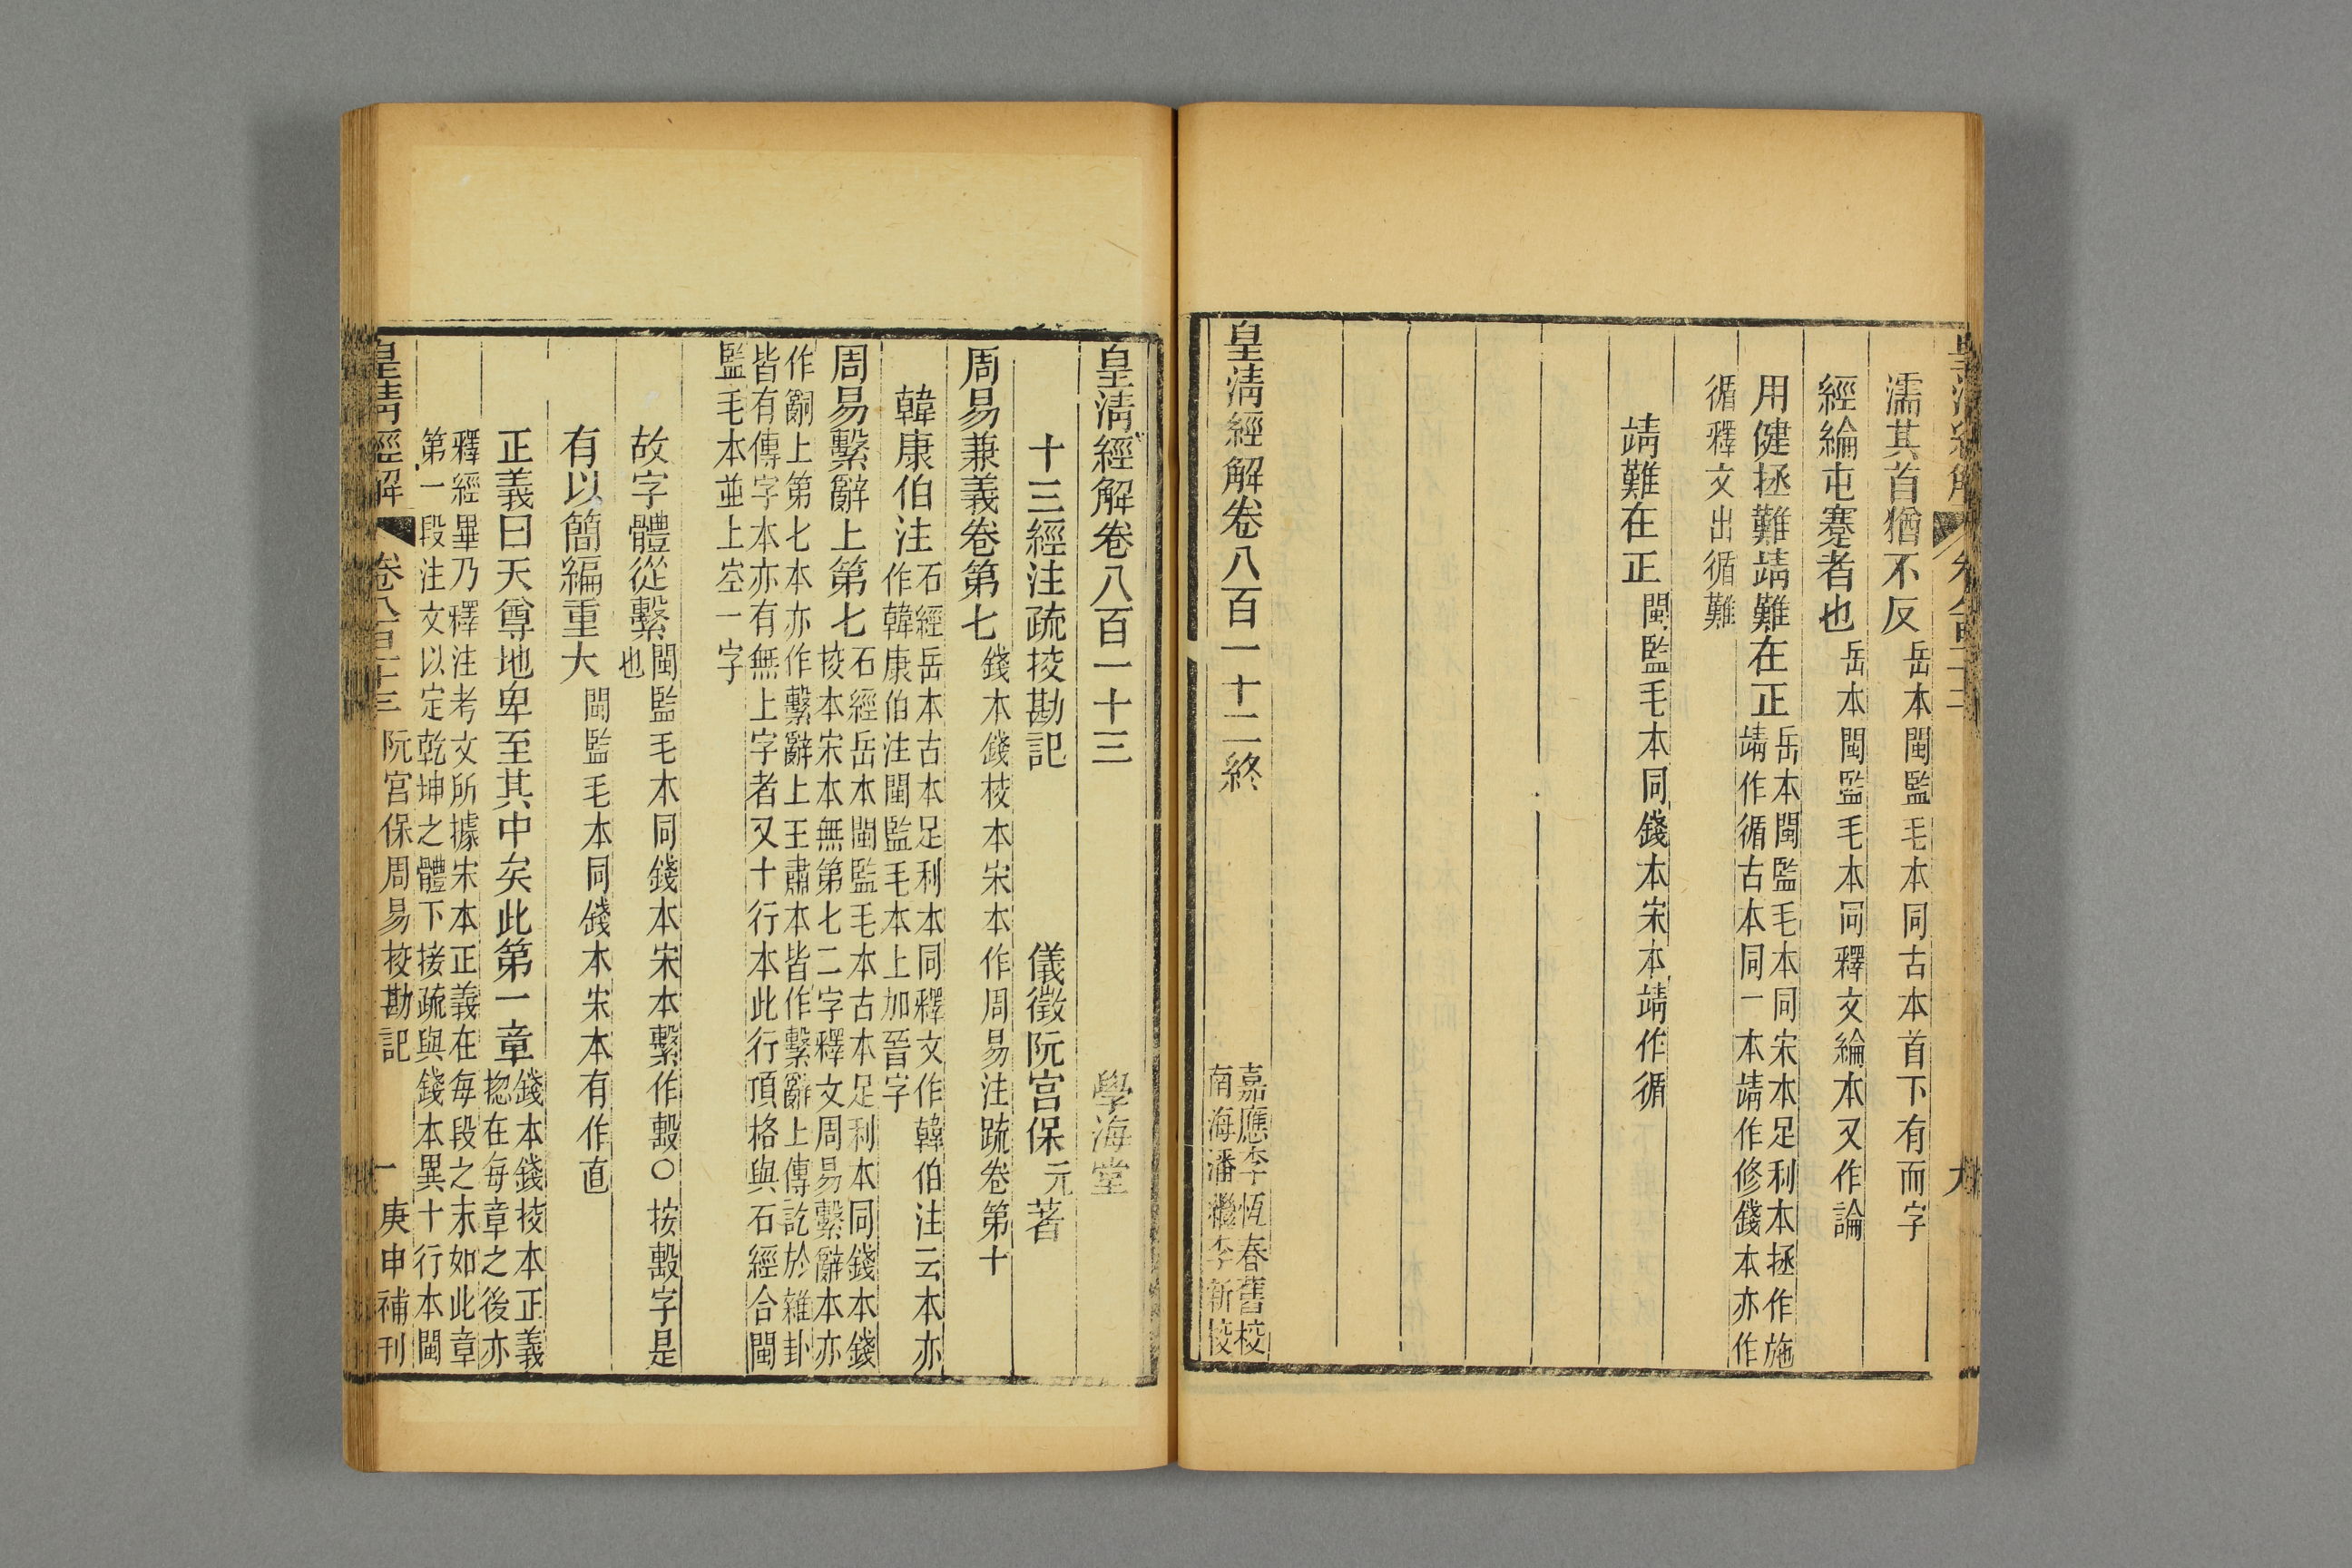 濡其首猶不反岳本閩監毛本同古本首下有而字
經綸屯蹇者也岳本閩監毛本同釋文綸本又作論
用健拯難靖難在正岳本閩監毛本同宋本足利本拯作施
靖作循古本同一本靖作修錢本亦作
循釋文出循難
靖難在正閩監毛本同錢本宋本靖作循
皇淸經解卷八百一十二終
嘉應李恆春舊校
南海潘繼李新校
皇淸經解卷八百一十三
學海堂
十三經注疏挍勘記
儀徵阮宮保元著
周易兼義卷第七錢本錢挍本宋本作周易注疏卷第十
韓康伯注石經岳本古本足利本同釋文作韓伯注云本亦
作韓康伯注閩監毛本上加晉字
周易繫辭上第七石經岳本閩監毛本古本足利本同錢本錢
挍本宋本無第七二字釋文周易繫辭本亦
作嗣上第七本亦作繫辭上王肅本皆作繫辭上傳訖於雜卦
皆有傳字本亦有無上字者又十行本此行頂格與石經合閩
監毛本並上空一字
故字體從繫閩監毛本同錢本宋本繫作毄〇按毄字是
也
有以簡編重大閩監毛本同錢本宋本有作直
正義曰天尊地卑至其中矣此第一章錢本錢挍本正義
揔在每章之後亦
釋經畢乃釋注考文所據宋本正義在每段之末如此章
第一段注文以定乾坤之體下接疏與錢本異十行本閩
皇淸經解
卷八百十三
阮宮保周易挍勘記
一
庚申補刊